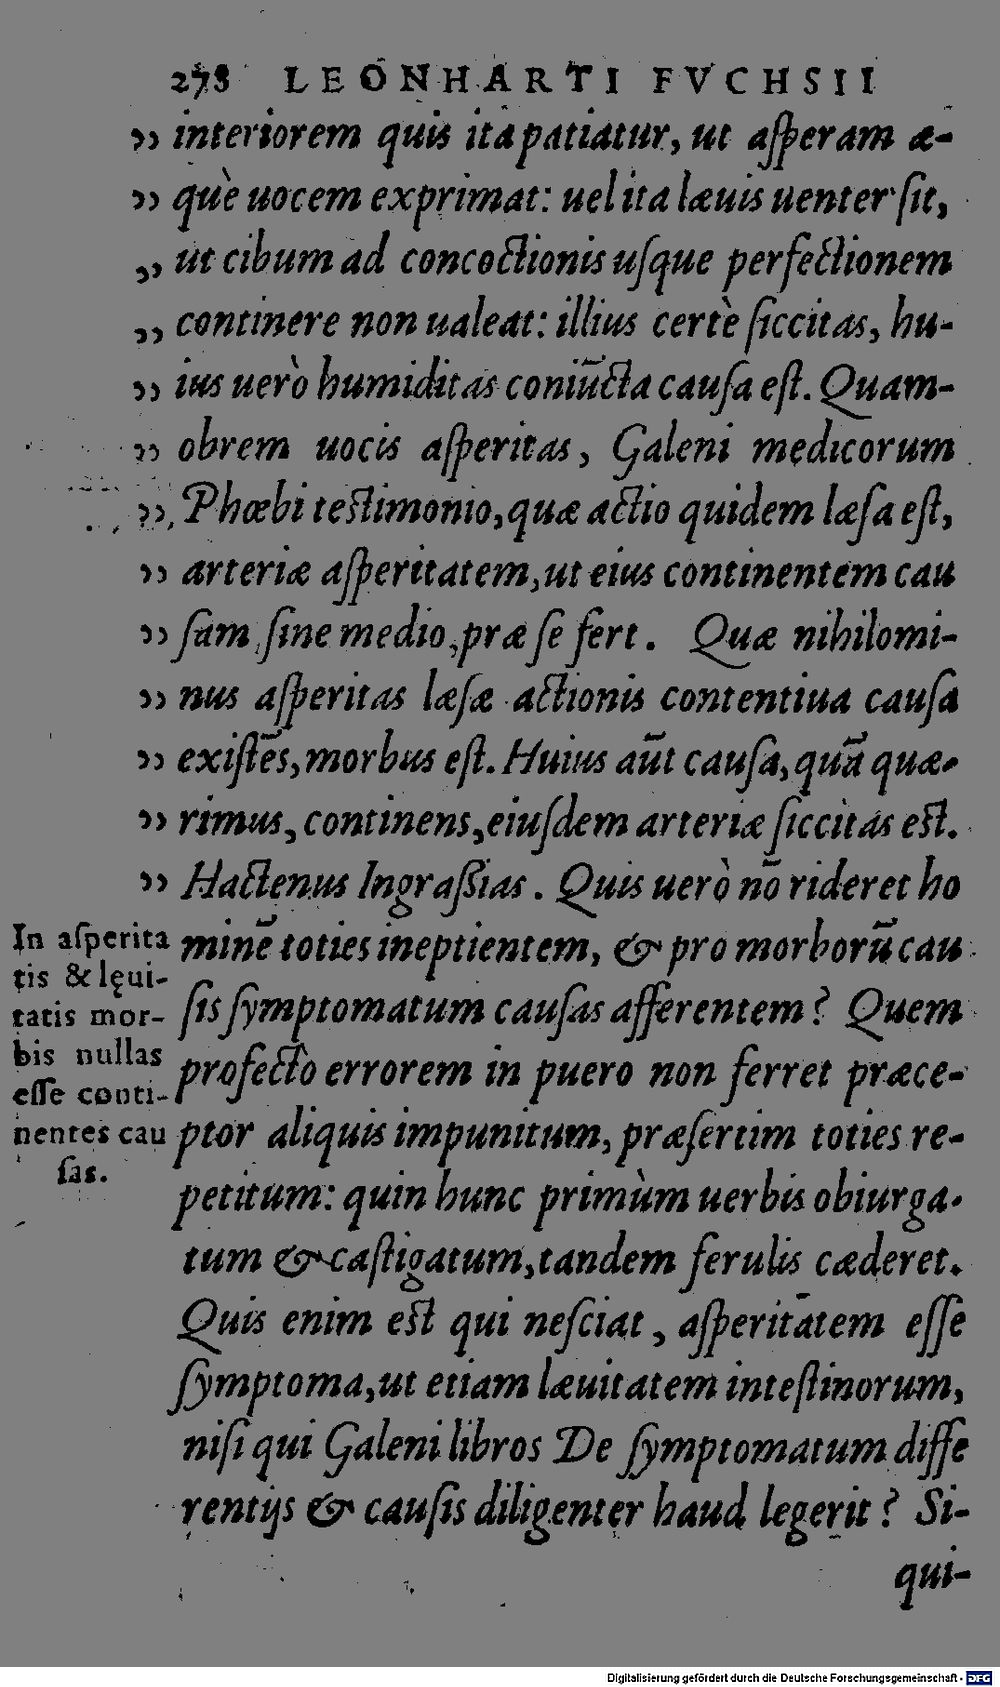 278 LEONHARTI FVCHSII
„ interiorem quis ita patiatur, ut aſperam æ-
„ què uocem exprimat: uel ita læuis uenter ſit,
„ ut cibum ad concoctionis uſque perfectionem
„ continere non ualeat: illius certè ſiccitas, hu-
„ ius uerò humiditas coniūcta cauſa eſt. Quam-
„ obrem uocis aſperitas, Galeni medicorum
„ Phœbi testimonio, quæ actio quidem læſa eſt,
„ arteriæ aſperitatem, ut eius continentem cau
„ ſam ſine medio, præ ſe fert. Quæ nihilomi-
„ nus aſperitas læſæ actionis contentiua cauſa
„ exiſtēs, morbus eſt. Huius aūt cauſa, quā quæ-
„ rimus, continens, eiuſdem arteriæ ſiccitas est.
„ Hactenus Ingraßias. Quis uerò nō rideret ho
minē toties ineptientem, & pro morborū cau
ſis ſymptomatum cauſas afferentem? Quem
profectò errorem in puero non ferret præce-
ptor aliquis impunitum, præſertim toties re-
petitum: quin hunc primùm uerbis obiurga-
tum & caſtigatum, tandem ferulis cæderet.
Quis enim est qui neſciat, aſperitatem eſſe
ſymptoma, ut etiam læuitatem inteſtinorum,
niſi qui Galeni libros De ſymptomatum diffe
rentijs & cauſis diligenter haud legerit? Si-
qui-
In aſperita
tis & lęui-
tatis mor-
bis nullas
eſſe conti-
nentes cau
ſas.
Digitalisierung gefördert durch die Deutsche Forschungsgemeinschaft - DFG